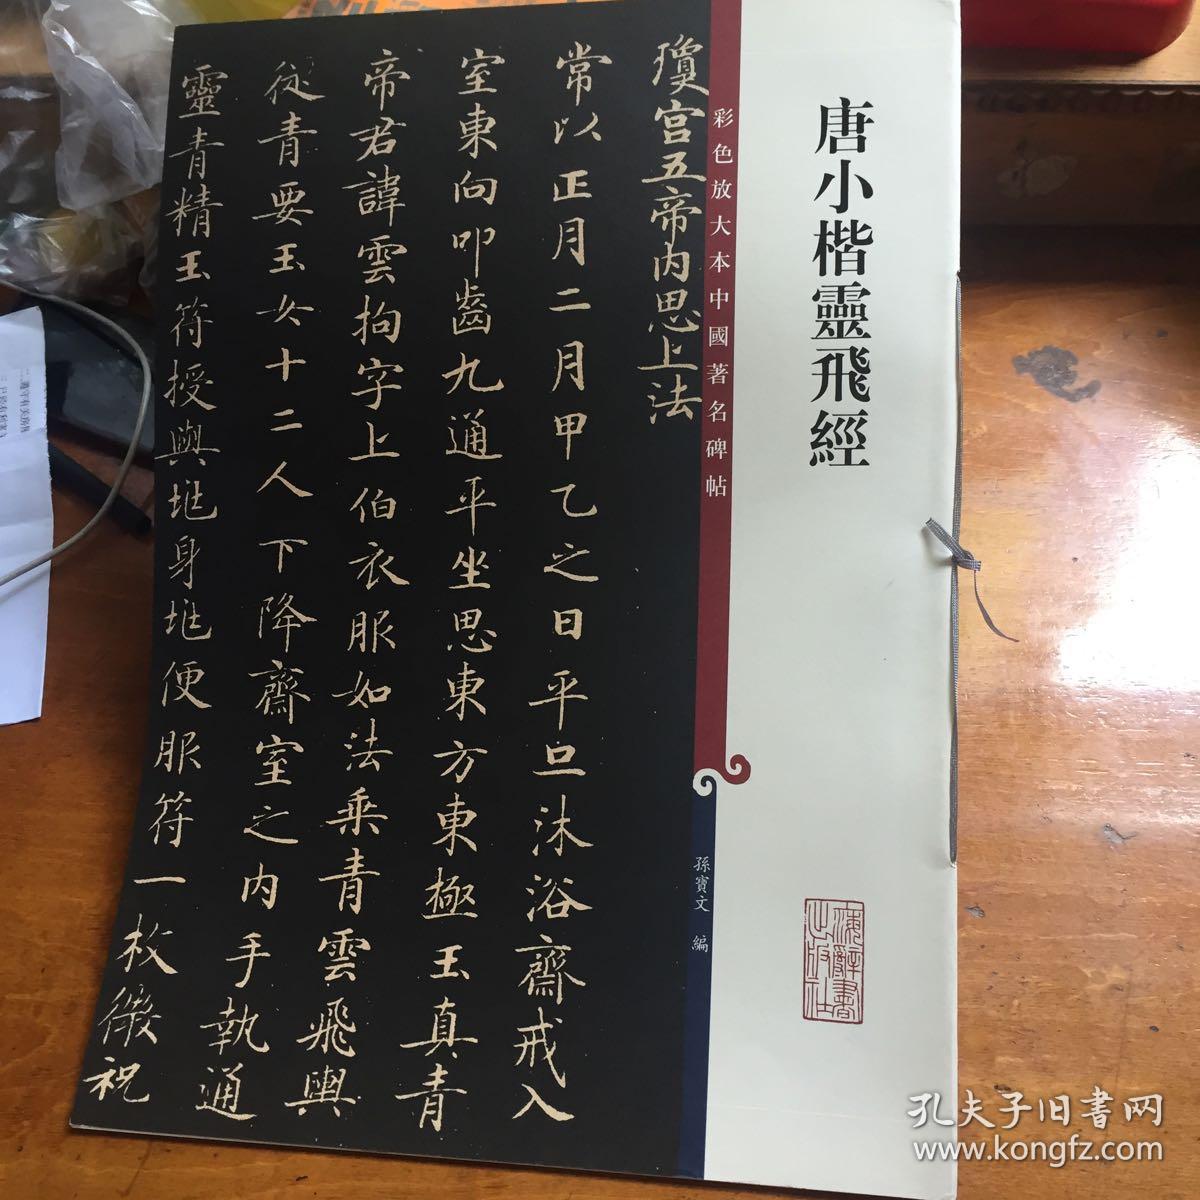 唐小楷靈飛經
彩色放大本中國著名碑帖
孫寶文 編
瓊宮五帝內思上法
常以正月二月甲乙之日平旦沐浴齋戒入
室東向叩齒九通平坐思東方東極玉真青
帝君諱雲拘字上伯衣服如法乘青雲飛輿
從青要玉女十二人下降齋室之內手執通
靈青精玉符授與地身地便服符一枚微祝
孔夫子旧書网
www.kongfz.com